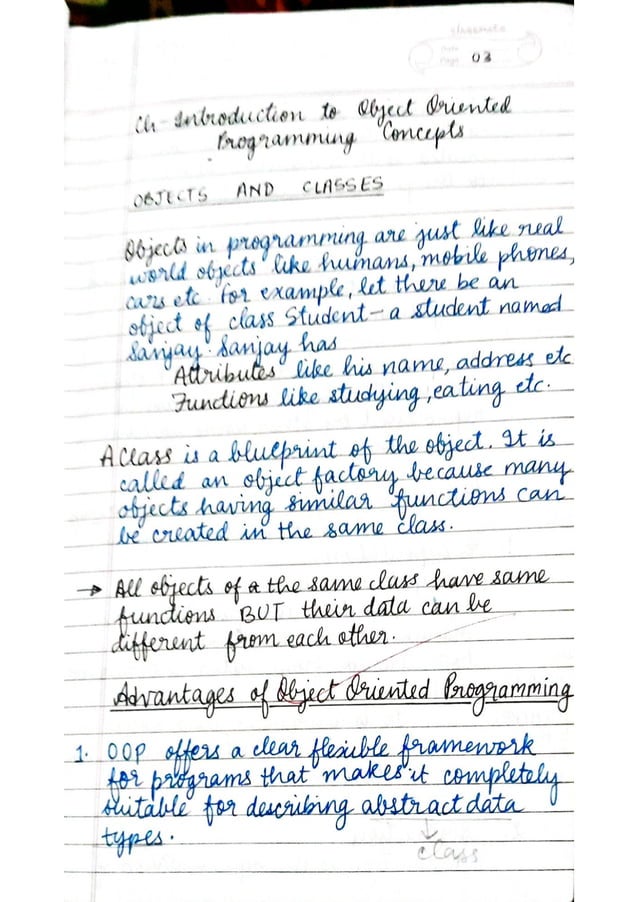 classmate
Date
Page 03
Ch - Introduction to Object Oriented
Programming Concepts
OBJECTS AND CLASSES
Objects in programming are just like real
world objects like humans, mobile phones,
cars etc. for example, let there be an
object of class Student - a student named
Sanjay. Sanjay has
Attributes like his name, address etc
Functions like studying, eating etc.
A Class is a blueprint of the object. It is
called an object factory because many
objects having similar functions can
be created in the same class.
→ All objects of the same class have same
functions BUT their data can be
different from each other.
Advantages of Object Oriented Programming
1. OOP offers a clear flexible framework
for programs that makes it completely
suitable for describing abstract data
types.
class